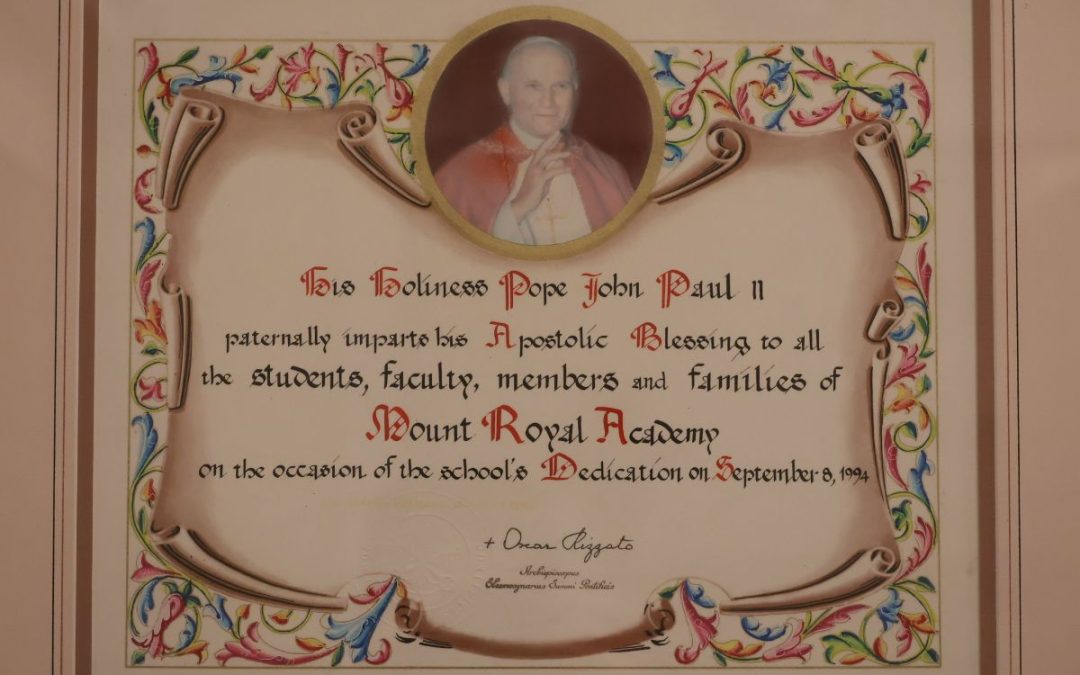 His Holiness Pope John Paul II
paternally imparts his Apostolic Blessing to all
the students, faculty, members and families of
Mount Royal Academy
on the occasion of the school's Dedication on September 8, 1994
+ Oscar Rizzato
Archiepiscopus
Eleemosynarius Summi Pontificis